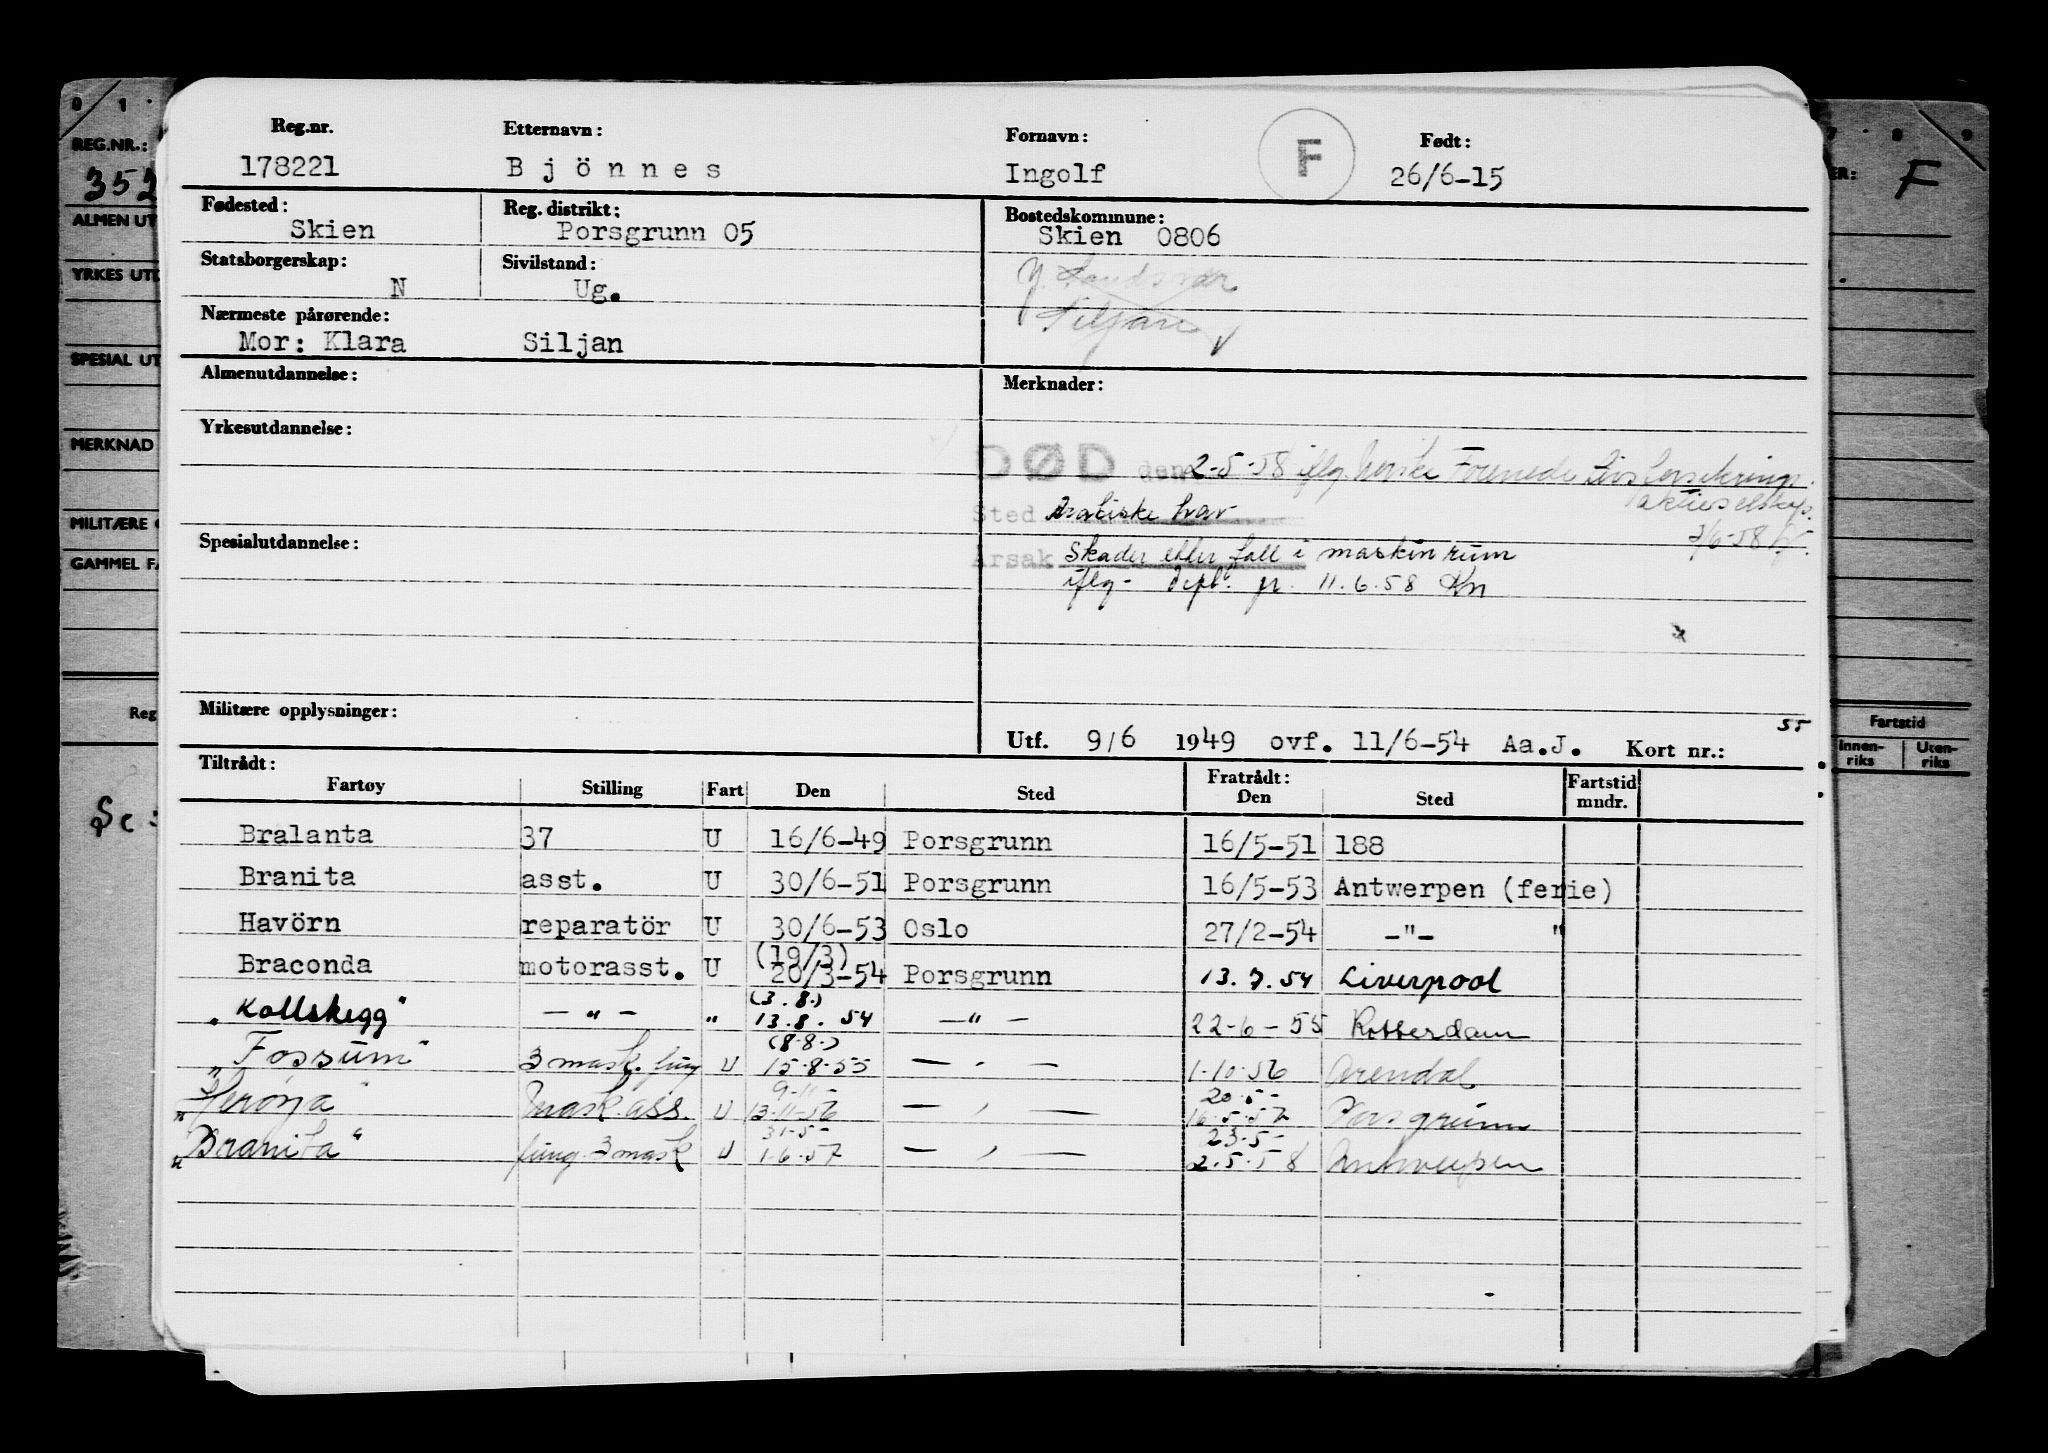 0 1
REG.NR.:
352
ALMEN UT
YRKES UTD
SPESIAL UT
MERKNAD
MILITÆRE
GAMMEL FA
Reg
7 8 9
ER: F
Fartstid
Innen-riks Uten-riks
Reg.nr. Etternavn: Fornavn: F Født:
178221 Bjönnes Ingolf 26/6-15
Fødested: Reg. distrikt: Bostedskommune:
Skien Porsgrunn 05 Skien 0806
Statsborgerskap: Sivilstand:
N Ug.
Nærmeste pårørende:
Mor: Klara Siljan
Almenutdannelse: Merknader:
Yrkesutdannelse:
DØD den 2-5-58 iflg. norske Forenede Livsforsikrings
aktieselskap.
Sted Arabiske hav
7/6-58
Spesialutdannelse:
Årsak Skader etter fall i maskinrum
iflg. dept. pr. 11.6.58
Militære opplysninger:
55
Utf. 9/6 1949 ovf. 11/6-54 Aa.J. Kort nr.:
Tiltrådt: Fratrådt:
Fartøy Stilling Fart Den Sted Den Sted Fartstid mndr.
Bralanta 37 U 16/6-49 Porsgrunn 16/5-51 188
Branita asst. U 30/6-51 Porsgrunn 16/5-53 Antwerpen (ferie)
Havörn reparatör U 30/6-53 Oslo 27/2-54 -"- "
(19/3)
Braconda motorasst. U 20/3-54 Porsgrunn 13.7.54 Liverpool
(3.8.)
"Kollskegg" -"- " 13.8.54 -"- 22-6-55 Rotterdam
(8.8.)
"Fossum" 3 mask. fung U 15.8.55 - " - 1.10.56 Arendal
9-11- 20.5-
"Herøya" mask.ass. U 13.11.56 - " - 16.5.57 Porsgrunn
31-5- 23.5-
"Branita" fung. 3 mask U 1.6.57 - " - 2.5.58 Antwerpen